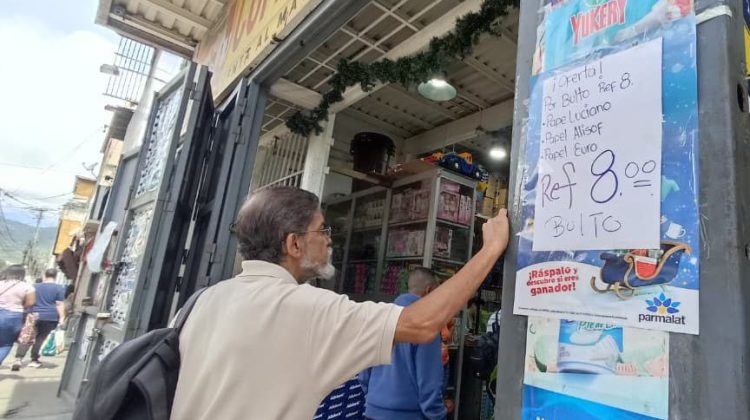 YUKERY
¡Oferta!
Por Bulto Ref 8.
• Papel Luciano
• Papel Alisof
• Papel Euro
Ref 8.00
BULTO
¡Ráspalo y
descubre si eres
ganador!
parmalat